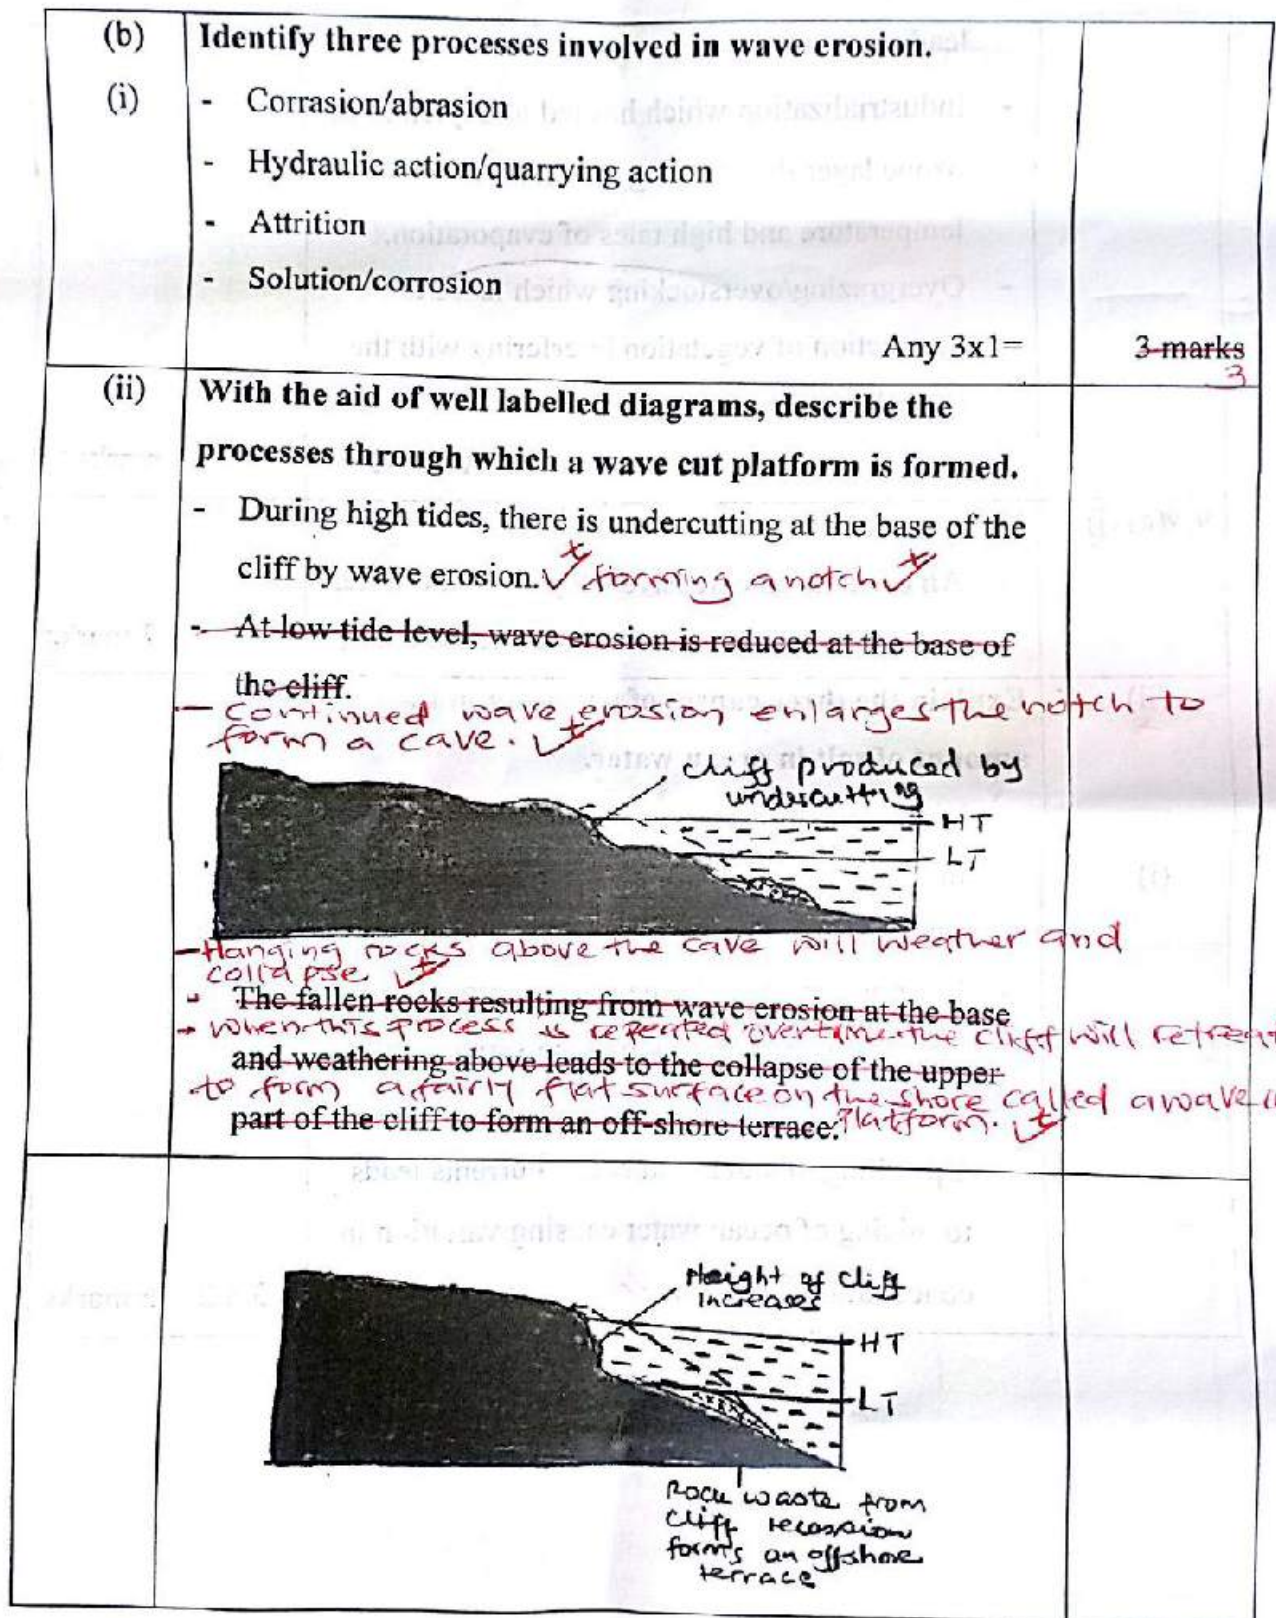 (b) Identify three processes involved in wave erosion.
(i) - Corrasion/abrasion
- Hydraulic action/quarrying action
- Attrition
- Solution/corrosion
Any 3x1= 3 marks
3
(ii) With the aid of well labelled diagrams, describe the
processes through which a wave cut platform is formed.
- During high tides, there is undercutting at the base of the
cliff by wave erosion. forming a notch
- At low tide level, wave erosion is reduced at the base of
the cliff.
- Continued wave erosion enlarges the notch to
form a cave.
cliff produced by
undercutting
HT
LT
- Hanging rocks above the cave will weather and
collapse
- The fallen rocks resulting from wave erosion at the base
- When this process is repeated overtime the cliff will retreat
and weathering above leads to the collapse of the upper
to form a fairly flat surface on the shore called a wave
part of the cliff to form an off-shore terrace. Platform.
Height of cliff
increases
HT
LT
Rock waste from
cliff recession
forms an offshore
terrace